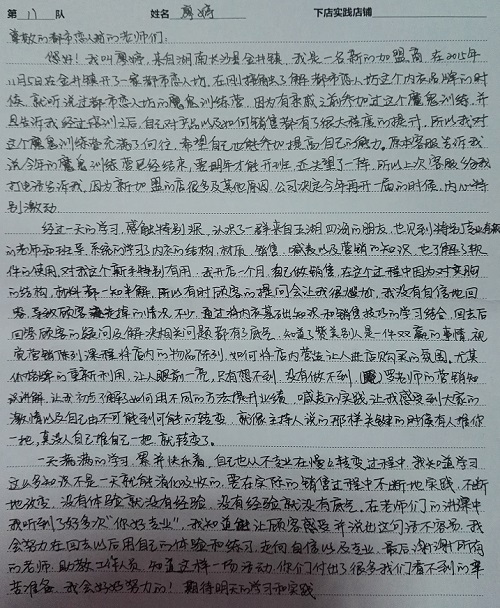 第 11 队 姓名 廖婷 下店实践店铺
尊敬的都市恋人坊的老师们:
您好!我叫廖婷,来自湖南长沙县金井镇,我是一名新的加盟商,在2015年
11月5日在金井镇开了一家都市恋人坊,在刚接触了解都市恋人坊这个内衣品牌的时
候,就听说过都市恋人坊的魔鬼训练营,因为有亲戚之前参加过这个魔鬼训练,并
且告诉我经过培训之后,自己对产品以及如何销售都有了很大程度的提升,所以我对
这个魔鬼训练营充满了向往,希望自己也能参加提高自己的能力。原本客服告诉我
说今年的魔鬼训练营已经结束,要明年才能开班,还失望了一阵,所以上次客服给我
打电话告诉我,因为新加盟的店很多及其他原因,公司决定今年再开一届的时候,内心特
别激动.
经过一天的学习,感触特别深,认识了一群来自五湖四海的朋友,也见到特别专业有教
的老师和班导,系统的学习了内衣的结构,材质,销售,喊麦以及营销的知识,也了解了软
件的使用,对我这个新手特别有用,我开店一个月,自己做销售,在这个过程中因为对文胸
的结构,面料都一知半解,所以有时顾客的提问会让我很尴尬,我没有自信地回
答,导致顾客走掉的情况不少,通过将内衣基础知识和销售技巧的学习结合,回去后
回答顾客的疑问及解决相关问题都有了底气,知道了赞美别人是一件双赢的事情,视
觉营销陈列课程将店内的物品陈列,如何将店内营造让人进店购买的氛围,尤其
你指导的重新利用,让人眼前一亮,只有想不到,没有做不到,罗老师的营销知
识讲解,让我初步了解了如何用不同的方法提升业绩,喊麦的实践,让我感受到大家的
激情以及自己由不可能到可能的转变,就像主持人说的那样关键的时候有人推你
一把,真没人自己推自己一把,就转变了。
一天满满的学习,累并快乐着,自己也从不专业在慢慢转变过程中,我知道学习
这么多知识不是一天就能消化吸收的,要在实际的销售过程中不断地实践,不断
地改变,没有体验就没有经验,没有经验就没有底气,在老师们的讲课中
我听到了好多次"你好专业",我知道能让顾客感受并说出这句话不容易,我
会努力在回去以后用自己的体验和练习,走向自信以及专业,最后谢谢所有
的老师,助教,工作人员,知道这样一场活动,你们付出了很多我们看不到的辛
苦准备,我会好好努力的!期待明天的学习和实践